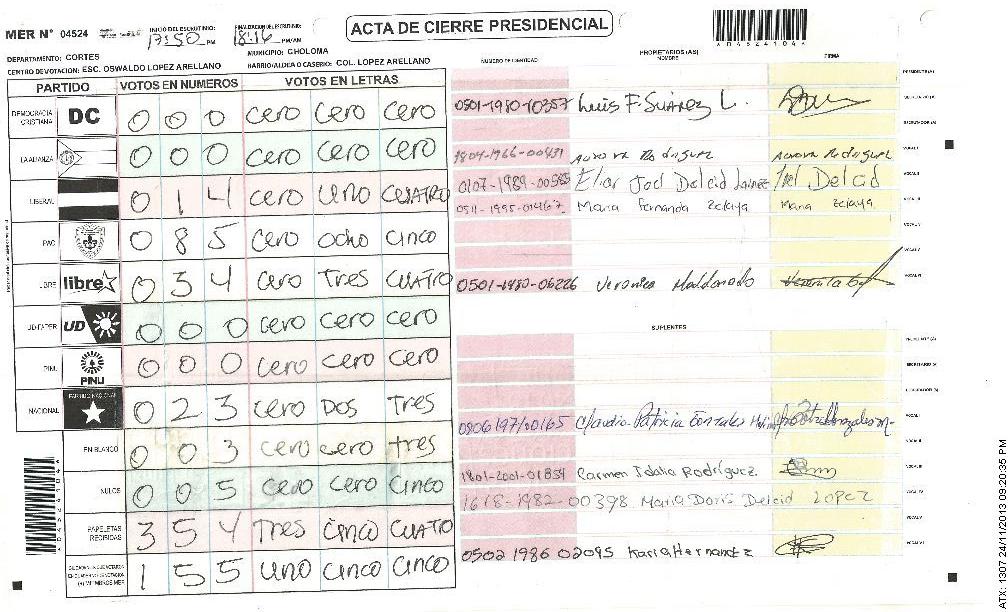 ACTA DE CIERRE PRESIDENCIAL
MER N° 04524
INICIO DEL ESCRUTINIO: 17:50 PM
FINALIZACION DE ESCRUTINIO: 18:16 PM/AM
DEPARTAMENTO: CORTES
MUNICIPIO: CHOLOMA
CENTRO DE VOTACION: ESC. OSWALDO LOPEZ ARELLANO
BARRIO/ALDEA O CASERIO: COL. LOPEZ ARELLANO
PARTIDO VOTOS EN NUMEROS VOTOS EN LETRAS
DEMOCRACIA CRISTIANA DC 0 0 0 cero cero cero
LA ALIANZA 0 0 0 cero cero cero
LIBERAL 0 1 4 cero uno cuatro
PAC 0 8 5 cero ocho cinco
LIBRE libre 0 3 4 cero tres cuatro
UD FAPER UD 0 0 0 cero cero cero
PINU PINU 0 0 0 cero cero cero
NACIONAL PARTIDO NACIONAL 0 2 3 cero Dos tres
EN BLANCO 0 0 3 cero cero tres
NULOS 0 0 5 cero cero cinco
PAPELETAS RECIBIDAS 3 5 4 tres cinco cuatro
1 5 5 uno cinco cinco
NUMERO DE IDENTIDAD
PROPIETARIOS (AS)
NOMBRE
FIRMA
PRESIDENTE (A)
0501-1980-10357 Luis F. Suárez L.
SECRETARIO (A)
ESCRUTADOR (A)
1804-1966-00431 Aurora Rodriguez Aurora Rodriguez
VOCAL I
0107-1989-00585 Elior Joel Delcid Joel Delcid
VOCAL II
0511-1995-01467 Maria Fernanda Zelaya Maria Zelaya
VOCAL III
VOCAL IV
VOCAL V
0501-1980-06226 Veronica Maldonado
VOCAL VI
SUPLENTES
PRESIDENTE (A)
SECRETARIO (A)
ESCRUTADOR (A)
0806197100165 Claudia Patricia Gonzales
VOCAL I
VOCAL II
1801-2001-01834 Carmen Idalia Rodríguez
VOCAL III
1618-1982-00398 Maria Doris Delcid LOPEZ
VOCAL IV
VOCAL V
0502 1986 02095 Karla Hernandez
VOCAL VI
ATX: 1307 24/11/2013 09:20:35 PM